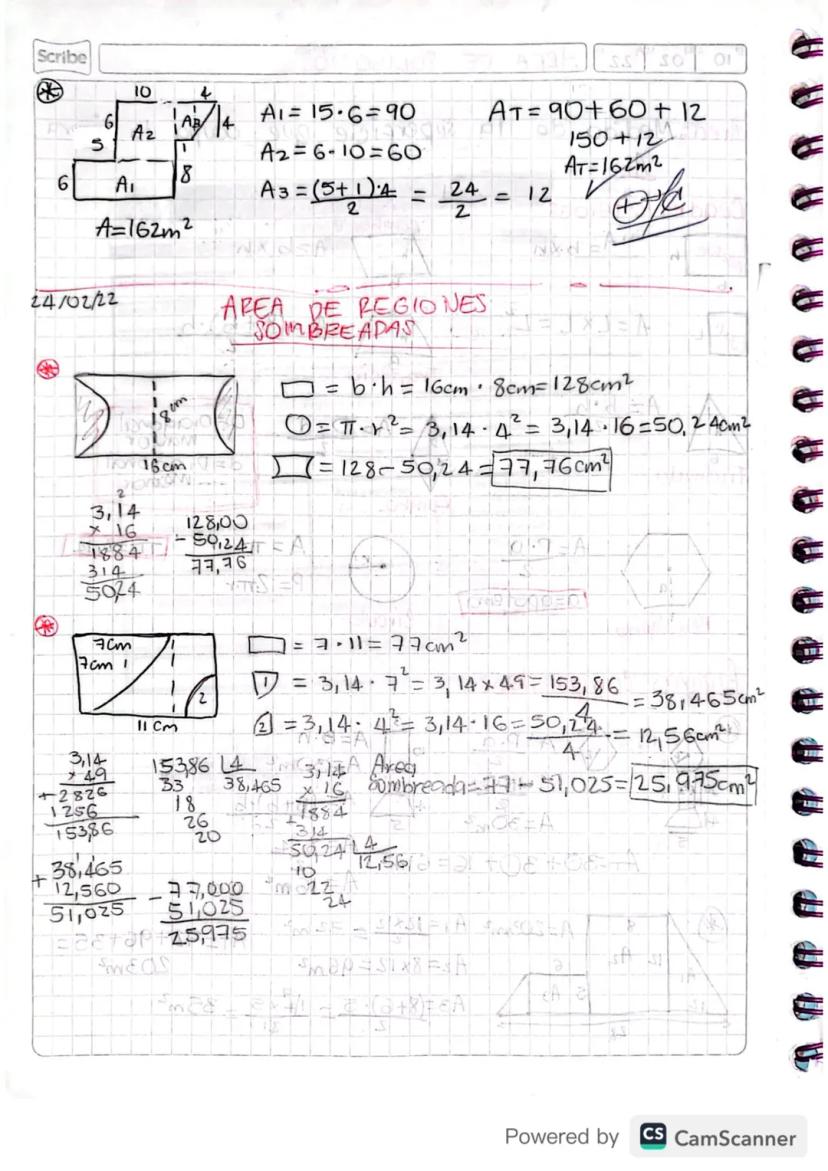 Scribe
10 4
6 A2 A3 4
5 1
6 A1 8
A=162m²
A1 = 15·6=90
A2 = 6·10=60
A3 = (5+1)·4 / 2 = 24 / 2 = 12
AT = 90+60+12
150+12
AT=162m²
24/02/22
AREA DE REGIONES
SOMBREADAS
8cm
16cm
= b·h = 16cm · 8cm= 128cm²
= π·r² = 3,14 · 4² = 3,14 · 16 = 50,24cm²
= 128 - 50,24 = 77,76cm²
2
3,14
x 16
1884
314
50,24
128,00
- 50,24
77,76
7cm
7cm 1
2
11cm
= 7 · 11 = 77cm²
1 = 3,14 · 7² = 3,14 x 49 = 153,86 / 4 = 38,465cm²
2 = 3,14 · 4² = 3,14 · 16 = 50,24 / 4 = 12,56cm²
Area
Sombreada = 77 - 51,025 = 25,975cm²
3,14
x 49
+ 2826
1256
153,86
153,86 4
33 38,465
18
26
20
3,14
x 16
+ 1884
314
50,24 4
10 12,56
22
24
+ 38,465
12,560
51,025
- 77,000
51,025
25,975
Powered by CS CamScanner